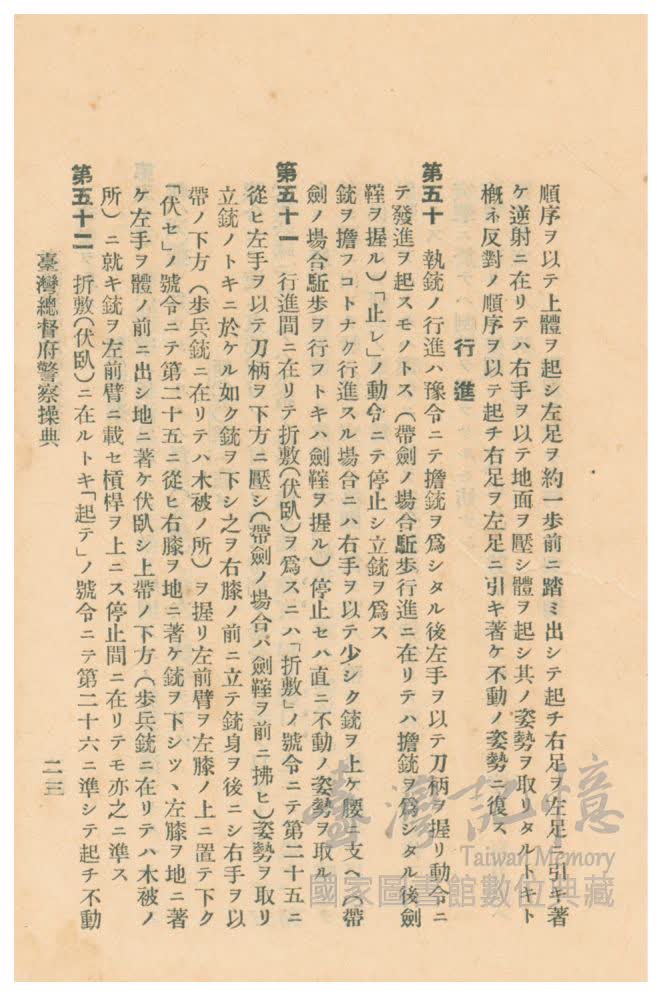 順序ヲ以テ上體ヲ起シ左足ヲ約一步前ニ踏ミ出シテ起チ右足ヲ左足ニ引キ著
ケ逆射ニ在リテハ右手ヲ以テ地面ヲ壓シ體ヲ起シ其ノ姿勢ヲ取リタルトキト
槪ネ反對ノ順序ヲ以テ起チ右足ヲ左足ニ引キ著ケ不動ノ姿勢ニ復ス
行進
第五十 執銃ノ行進ハ豫令ニテ擔銃ヲ爲シタル後左手ヲ以テ刀柄ヲ握リ動令ニ
テ發進ヲ起スモノトス(帶劍ノ場合駈步行進ニ在リテハ擔銃ヲ爲シタル後劍
鞘ヲ握ル)「止レ」ノ動令ニテ停止シ立銃ヲ爲ス
銃ヲ擔フコトナク行進スル場合ニハ右手ヲ以テ少シク銃ヲ上ケ腰ニ支ヘ(帶
劍ノ場合駈步ヲ行フトキハ劍鞘ヲ握ル)停止セハ直ニ不動ノ姿勢ヲ取ル
第五十一 行進間ニ在リテ折敷(伏臥)ヲ爲スニハ「折敷」ノ號令ニテ第二十五ニ
從ヒ左手ヲ以テ刀柄ヲ下方ニ壓シ(帶劍ノ場合ハ劍鞘ヲ前ニ拂ヒ)姿勢ヲ取リ
立銃ノトキニ於ケル如ク銃ヲ下シ之ヲ右膝ノ前ニ立テ銃身ヲ後ニシ右手ヲ以
帶ノ下方(步兵銃ニ在リテハ木被ノ所)ヲ握リ左前臂ヲ左膝ノ上ニ置テ下ク
「伏セ」ノ號令ニテ第二十五ニ從ヒ右膝ヲ地ニ著ケ銃ヲ下シツヽ左膝ヲ地ニ著
ケ左手ヲ體ノ前ニ出シ地ニ著ケ伏臥シ上帶ノ下方(步兵銃ニ在リテハ木被ノ
所)ニ就キ銃ヲ左前臂ニ載セ槓桿ヲ上ニス停止間ニ在リテモ亦之ニ準ス
第五十二 折敷(伏臥)ニ在ルトキ「起テ」ノ號令ニテ第二十六ニ準シテ起チ不動
臺灣總督府警察操典 二三
臺灣記憶
Taiwan Memory
國家圖書館數位典藏